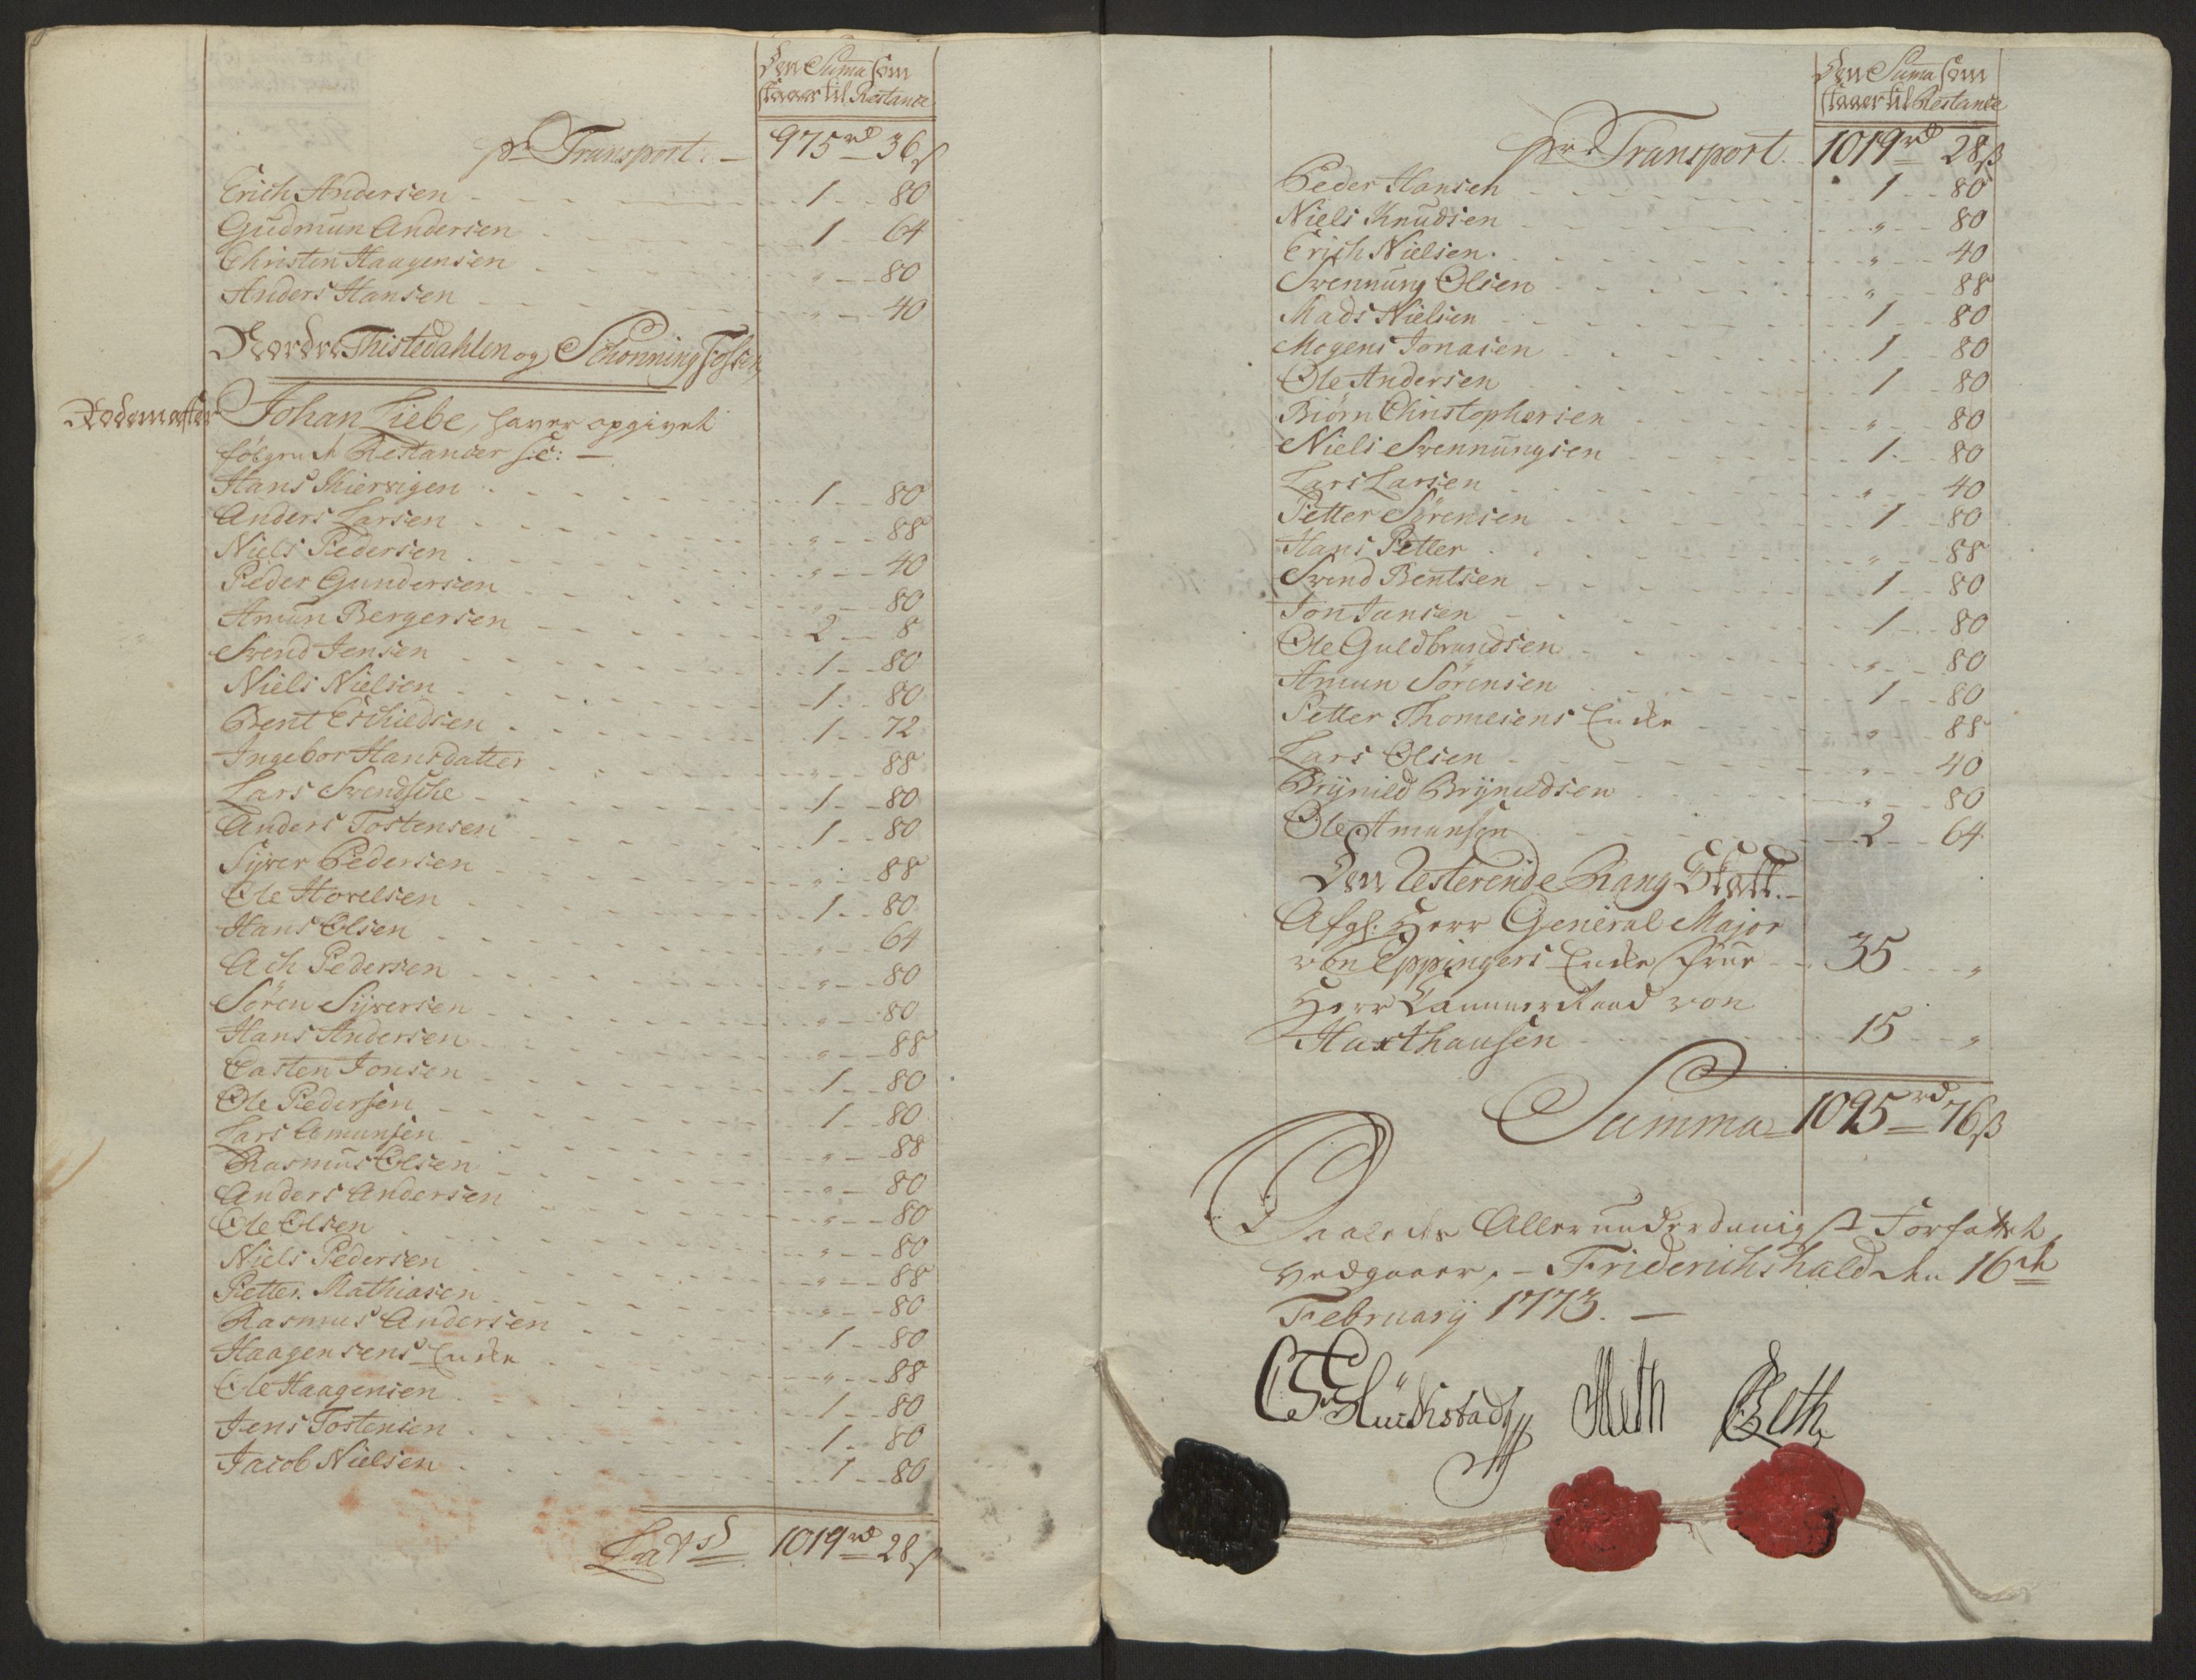 Den Summa som
staaer til Restance
pr Transport. — 975 rd 36 ß
Erich Andersen - - - 1 - - 80
Gudmun Andersen - - - 1 - - 64
Christen Haagensen - - - " - - 80
Anders Hansen - - - " - - 40
Nordre Thistedahlen og Schonning Fossen
Rodemester Johan Liebe, haver opgivet
følgende Restancer sc: —
Hans Skiervigen - - - 1 - - 80
Anders Larsen - - - " - - 88
Niels Pedersen - - - " - - 40
Peder Gundersen - - - " - - 80
Amun Bergersen - - - 2 - - 8
Svend Jensen - - - 1 - - 80
Niels Nielsen - - - 1 - - 80
Bent Eschildsen - - - 1 - - 72
Ingebor Hansdatter - - - " - - 88
Lars Svendsche - - - 1 - - 80
Anders Tostensen - - - 1 - - 80
Sijver Pedersen - - - " - - 88
Ole Hovelsen - - - 1 - - 80
Hans Olsen - - - " - - 64
Ach Pedersen - - - " - - 80
Sören Sijversen - - - " - - 80
Hans Andersen - - - " - - 88
Casten Jonsen - - - 1 - - 80
Ole Pedersen - - - 1 - - 80
Lars Amunsen - - - " - - 88
Rasmus Olsen - - - " - - 80
Anders Andersen - - - " - - 80
Ole Olsen - - - " - - 80
Niels Pedersen - - - " - - 88
Petter Mathiasen - - - " - - 80
Rasmus Andersen - - - 1 - - 80
Haagensens Encke - - - " - - 88
Ole Haagensen - - - 1 - - 80
Jens Tostensen - - - 1 - - 80
Jacob Nielsen - - - 1 - - 80
Lats 1019 rd 28 ß
Den Summa som
staaer til Restance
pr Transport. 1019 rd 28 ß
Peder Hansen - - - 1 - - 80
Niels Knudsen - - - " - - 80
Erich Nielsen - - - " - - 40
Svennung Olsen - - - " - - 88
Mads Nielsen - - - 1 - - 80
Mogens Jonasen - - - 1 - - 80
Ole Andersen - - - 1 - - 80
Biörn Christophersen - - - " - - 80
Niels Svennungsen - - - 1 - - 80
Lars Larsen - - - " - - 40
Petter Sörensen - - - 1 - - 80
Hans Petter - - - " - - 88
Svend Bentsen - - - 1 - - 80
Jon Jansen - - - 1 - - 80
Ole Guldbrandsen - - - " - - 80
Amun Sörensen - - - 1 - - 80
Petter Thomesens Encke - " - - 88
Lars Olsen - - - " - - 40
Brijnild Brijnildsen - - - " - - 80
Ole Amunsen - - - 2 - - 64
Den Resterende Rang Skatt. —
Afgl: Herr General Major
von Eppingers Encke Frue - - 35 - - "
Herr Cammer Raad von
Haxthausen - - - 15 - - "
Summa 1095 rd 76 ß
Saaledes Allerunderdanigst Forfattet
vedgaaer, — Friderichshald den 16de
Februarij 1773. —
CF Glückstad Mith Beth